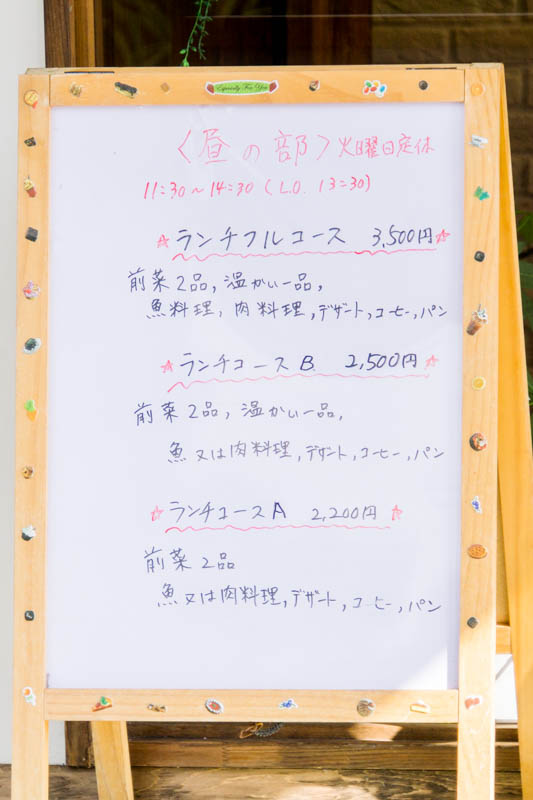 Especially For You
〈昼の部〉火曜日定休
11:30～14:30 (L.O. 13:30)
☆ランチフルコース 3,500円☆
前菜2品, 温かい一品,
魚料理, 肉料理, デザート, コーヒー, パン
☆ランチコースB 2,500円☆
前菜2品, 温かい一品,
魚又は肉料理, デザート, コーヒー, パン
☆ランチコースA 2,200円☆
前菜2品
魚又は肉料理, デザート, コーヒー, パン